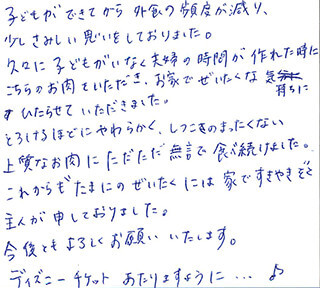 子どもができてから外食の頻度が減り、
少しさみしい思いをしておりました。
久々に子どもがいなく夫婦の時間が作れた時に
こちらのお肉をいただき、お家でぜいたくな気持ちに
ひたらせていただきました。
とろけるほどにやわらかく、しつこさのまったくない
上質なお肉にただただ無言で食べ続けました。
これからもたまにのぜいたくには家ですきやきぞと
主人が申しておりました。
今後ともよろしくお願いいたします。
ディズニーチケットあたりますように…♪